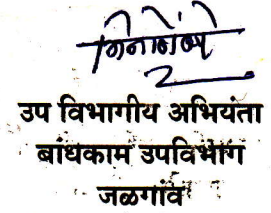 उप विभागीय अभियंता
बांधकाम उपविभाग
जळगांव